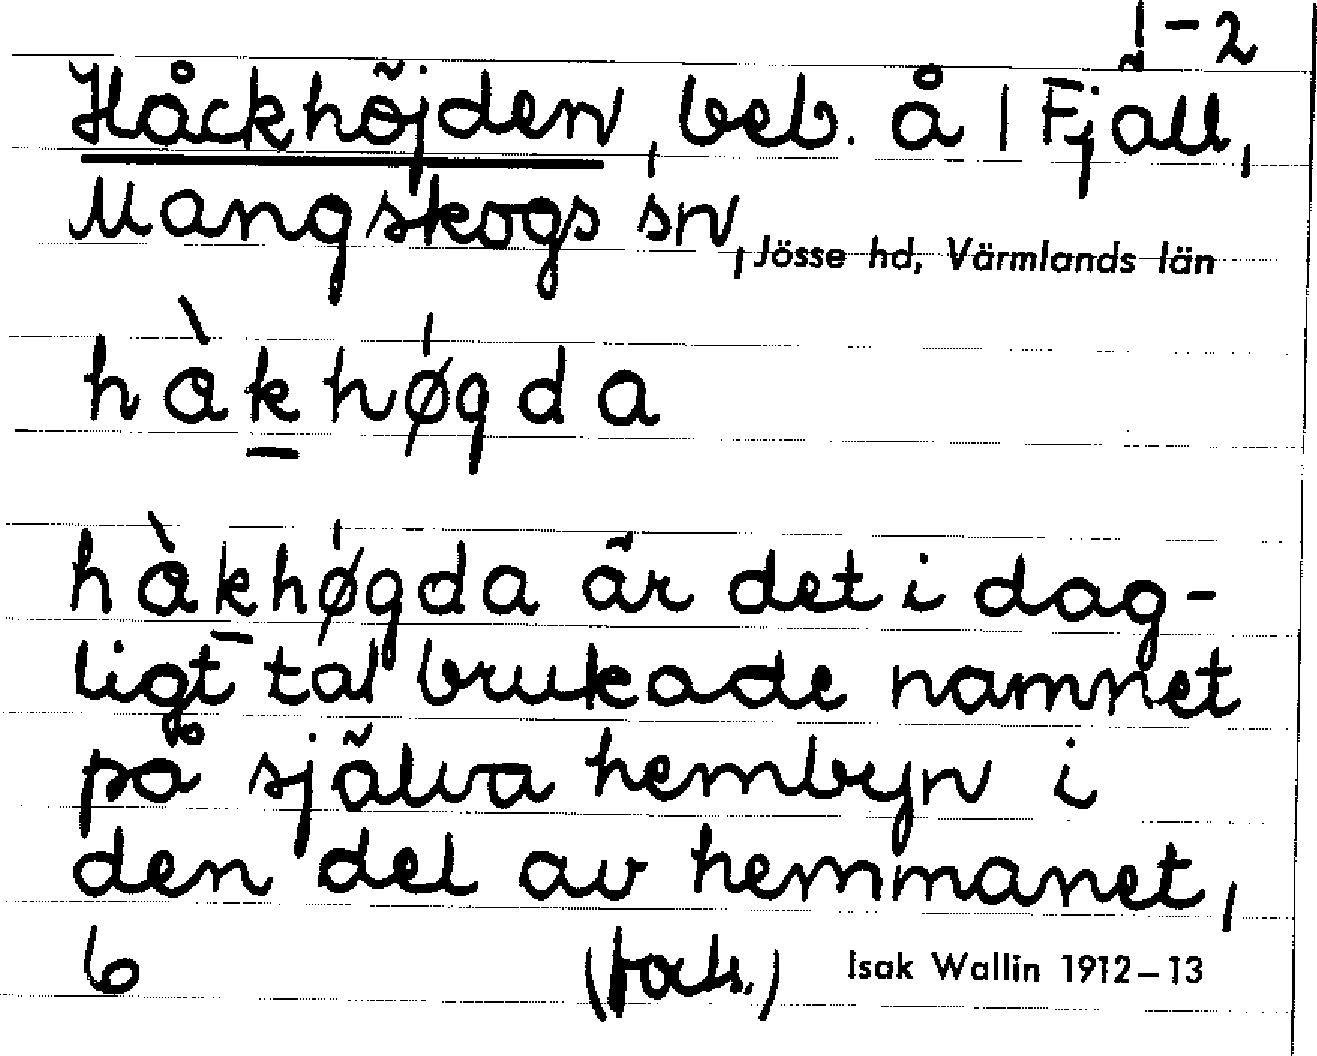 1-2
Håckhöjden, beb. å 1 Fjäll,
Mangskogs sn, Jösse hd, Värmlands län
hàkhø̍gda
hàkhø̍gda är det i dag-
ligt tal brukade namnet
på själva hembyn i
den del av hemmanet,
6 (forts.) Isak Wallin 1912-13